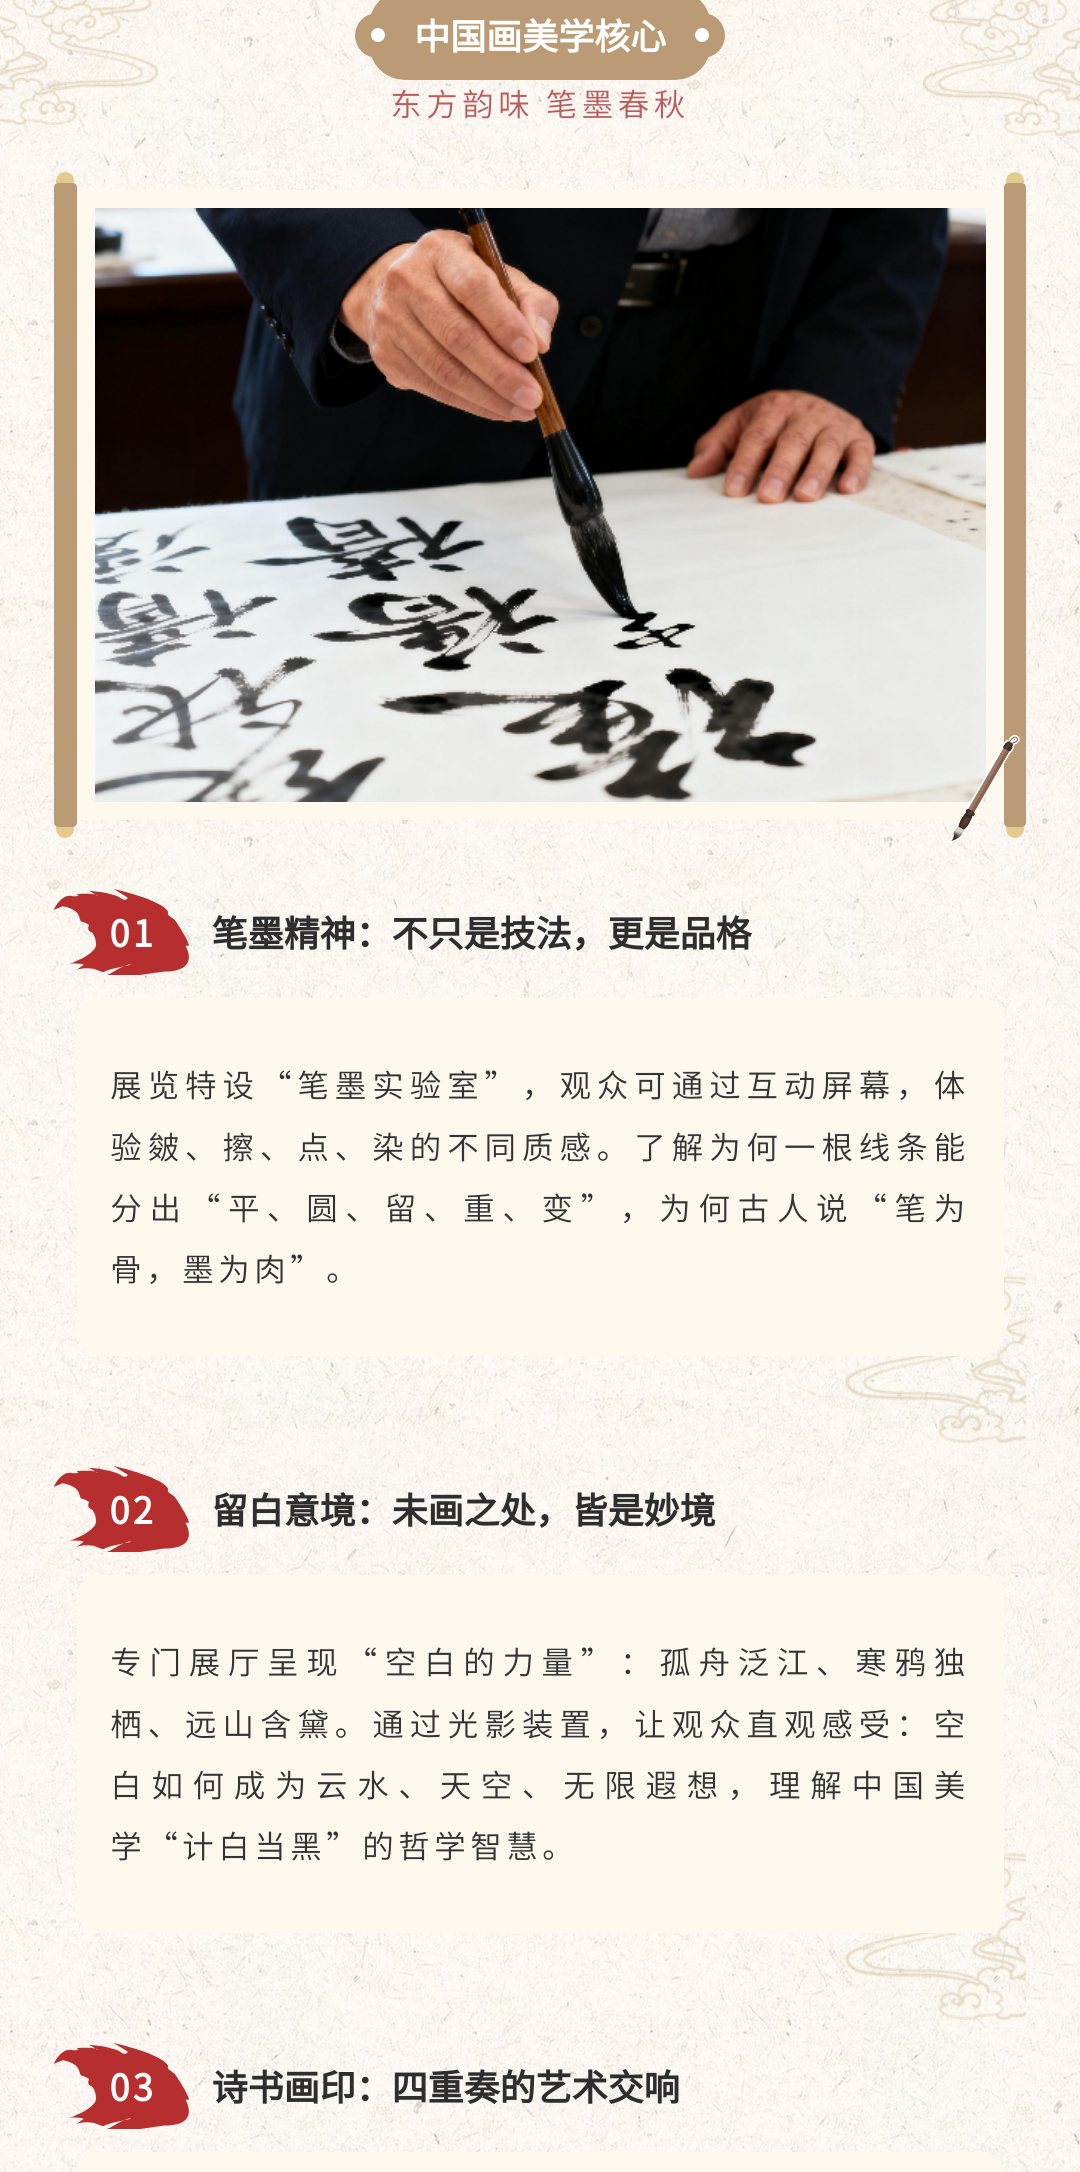 中国画美学核心
东方韵味 笔墨春秋
01
笔墨精神：不只是技法，更是品格
展览特设“笔墨实验室”，观众可通过互动屏幕，体
验皴、擦、点、染的不同质感。了解为何一根线条能
分出“平、圆、留、重、变”，为何古人说“笔为
骨，墨为肉”。
02
留白意境：未画之处，皆是妙境
专门展厅呈现“空白的力量”：孤舟泛江、寒鸦独
栖、远山含黛。通过光影装置，让观众直观感受：空
白如何成为云水、天空、无限遐想，理解中国美
学“计白当黑”的哲学智慧。
03
诗书画印：四重奏的艺术交响